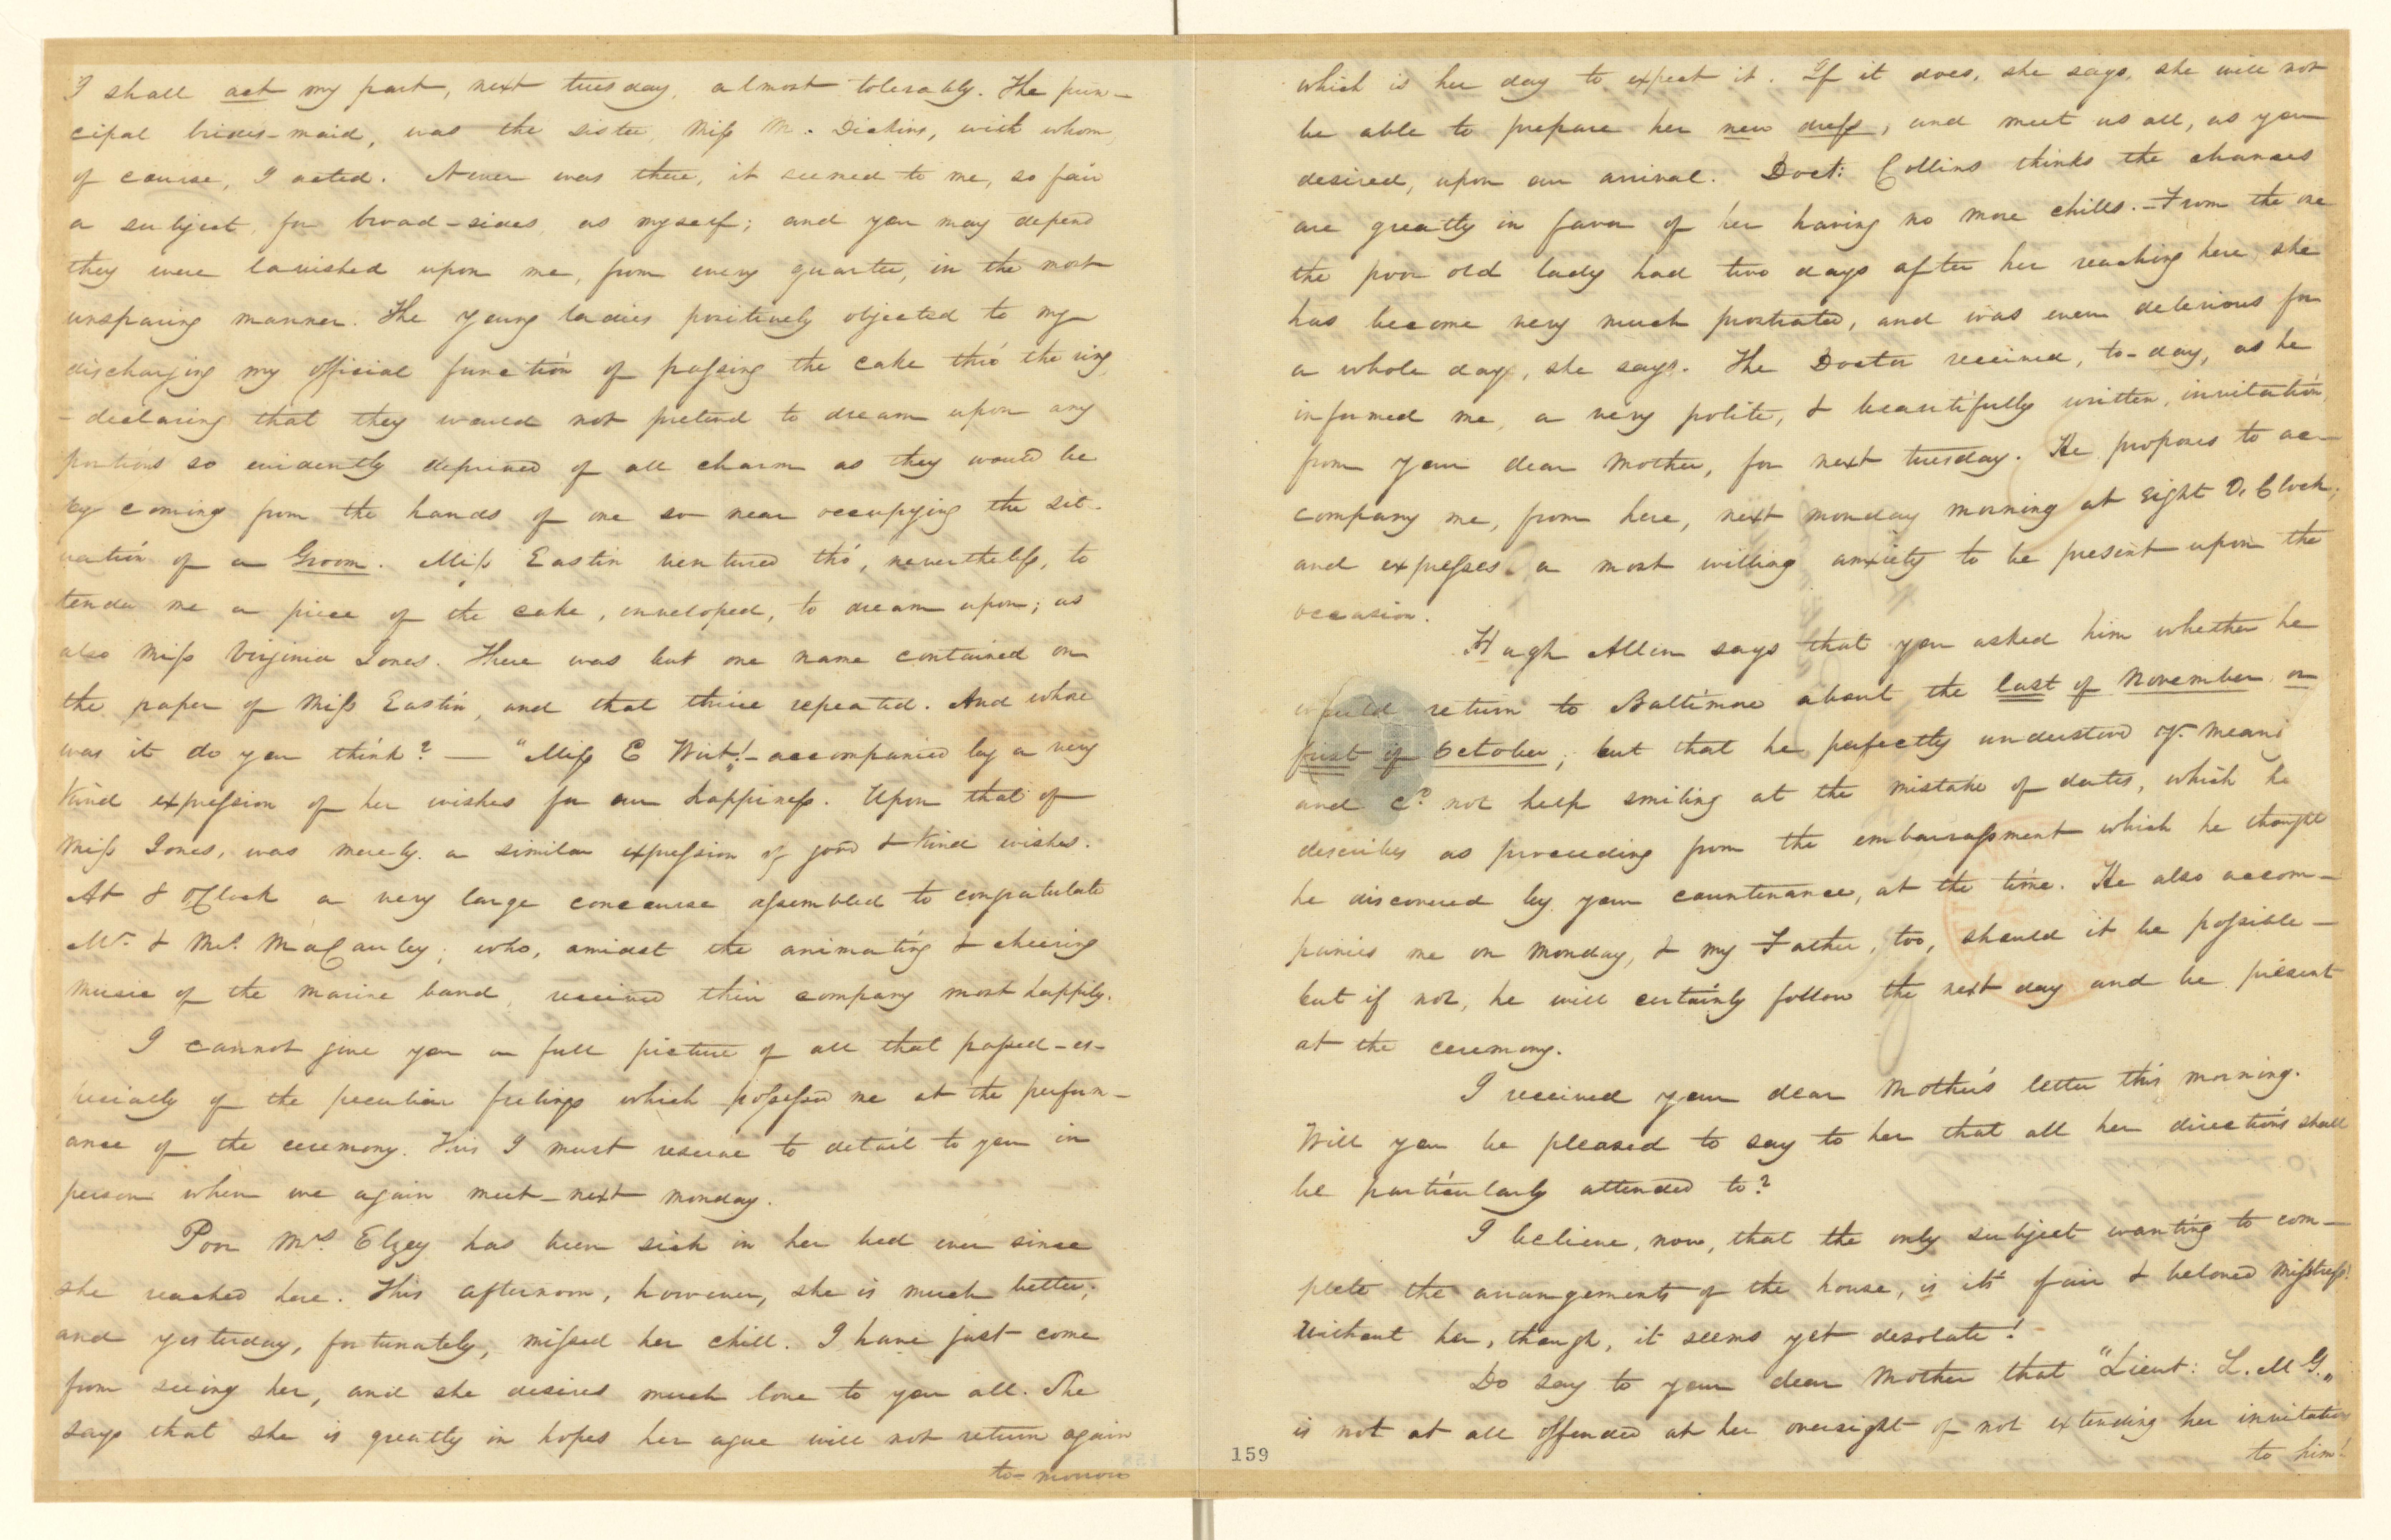 I shall act my part, next tuesday, almost tolerably. The prin-
cipal brides-maid, was the sister, Miss M. Dickins, with whom,
of course, I acted. Never was there, it seemed to me, so fair
a subject, for broad-sides, as myself; and you may depend
they were lavished upon me, from every quarter, in the most
unsparing manner. The young ladies positively objected to my
discharging my official function of passing the cake thro' the ring
- declaring that they would not pretend to dream upon any
portions so evidently deprived of all charm as they would be
by coming from the hands of one so near occupying the sit-
uation of a Groom. Miss Eastin ventured tho', nevertheless, to
tender me a piece of the cake, enveloped, to dream upon; as
also Miss Virginia Jones. There was but one name contained on
the paper of Miss Eastin, and that thrice repeated. And whose
was it do you think? — "Miss E Wirt!" - accompanied by a very
kind expression of her wishes for our happiness. Upon that of
Miss Jones, was merely a similar expression of good & kind wishes.
At 8 O'Clock a very large concourse assembled to congratulate
Mr. & Mrs. MaCauley; who, amidst the animating & cheering
music of the marine band, received their company most happily.
I cannot give you a full picture of all that passed - es-
pecially of the peculiar feelings which possessed me at the perform-
ance of the ceremony. This I must reserve to detail to you in
person when we again meet - next monday.
Poor Mrs. Elzey has been sick in her bed ever since
she reached here. This afternoon, however, she is much better;
and yesterday, fortunately, missed her chill. I have just come
from seeing her, and she desires much love to you all. She
says that she is greatly in hopes her ague will not return again
to-morrow
which is her day to expect it. If it does, she says, she will not
be able to prepare her new dress, and meet us all, as you
desired, upon our arrival. Doct: Collins thinks the chances
are greatly in favor of her having no more chills. - From the one
the poor old lady had two days after her reaching here she
has become very much prostrated, and was even delerious for
a whole day, she says. The Doctor received, to-day, as he
informed me, a very polite, & beautifully written, invitation,
from your dear Mother, for next tuesday. He proposes to ac-
company me, from here, next monday morning at eight O'Clock;
and expresses a most willing anxiety to be present upon the
occasion.
Hugh Allen says that you asked him whether he
would return to Baltimore about the last of November or
first of October; but that he perfectly understood yr. meang
and cd. not help smiling at the mistake of dates, which he
describes as proceeding from the embarrassment which he thought
he discovered by your countenance, at the time. He also accom-
panies me on Monday, & my Father, too, should it be possible -
but if not, he will certainly follow the next day and be present
at the ceremony.
I received your dear Mother's letter this morning.
Will you be pleased to say to her that all her directions shall
be particularly attended to?
I believe, now, that the only subject wanting to com-
plete the arrangements of the house, is its fair & beloved Misstress!
Without her, though, it seems yet desolate!
Do say to your dear Mother that "Lieut: L. M G."
is not at all offended at her oversight of not extending her invitation
to him!
159